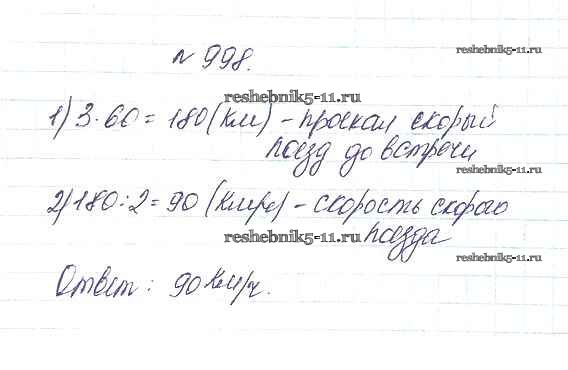 № 998.
reshebnik5-11.ru
reshebnik5-11.ru
1) 3·60=180(км) – проехал скорый
поезд до встречи
reshebnik5-11.ru
2) 180:2=90 (км/ч) – скорость скорого
поезда
reshebnik5-11.ru
reshebnik5-11.ru
Ответ: 90 км/ч.